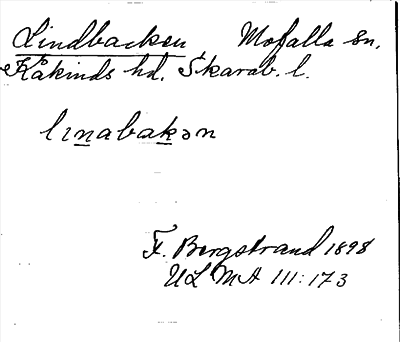 Lindbacken, Mofalla sn,
Kåkinds hd, Skarab. l.
lɪnabakən
F. Bergstrand 1898
ULMA 111:173